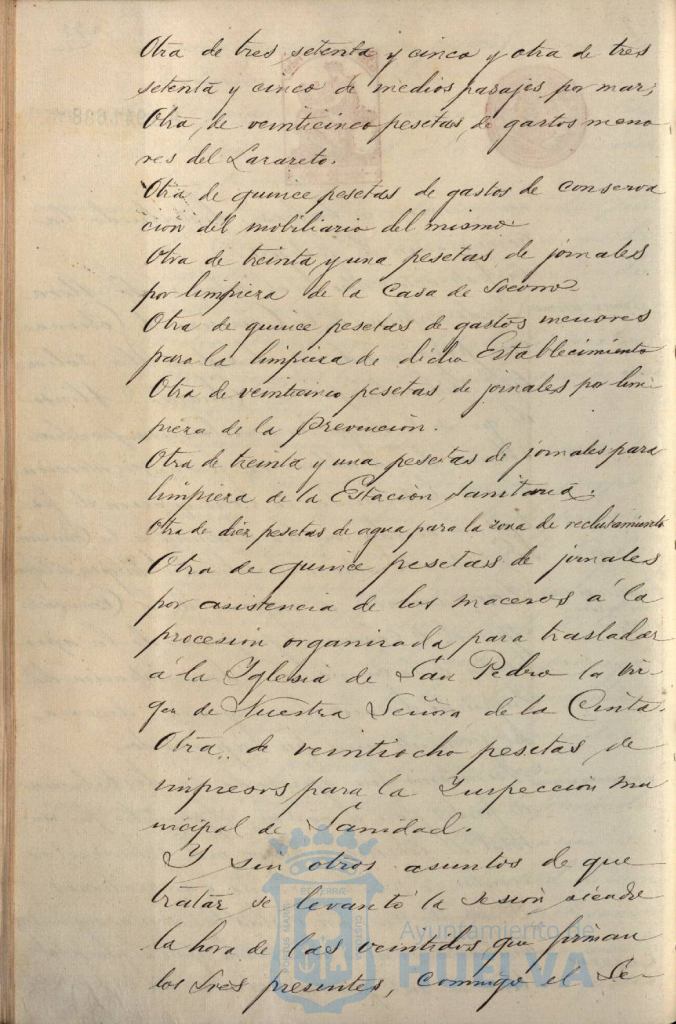 Otra de tres setenta y cinco y otra de tres
setenta y cinco de medios pasajes por mar;
Otra, de veinticinco pesetas, de gastos meno
res del Lazareto.
Otra de quince pesetas de gastos de conserva
cion del mobiliario del mismo
Otra de treinta y una pesetas de jornales
por limpieza de la Casa de Socorro
Otra de quince pesetas de gastos menores
para la limpieza de dicho Establecimiento
Otra de veinticinco pesetas de jornales por lim
pieza de la Prevención.
Otra de treinta y una pesetas de jornales para
limpieza de la Estación Sanitaria;
Otra de diez pesetas de agua para la zona de reclutamiento
Otra de quince pesetas de jornales
por asistencia de los maceros á la
procesion organizada para trasladar
á la Yglesia de San Pedro la Vir-
gen de Nuestra Señora de la Cinta.
Otra, de veintiocho pesetas, de
impresos para la Inspeccion mu
nicipal de Sanidad.
Y sin otros asuntos de que
tratar se levantó la sesion siendo
la hora de las veintidos que firman
los Sres presentes, conmigo el Se-
Ayuntamiento de
HUELVA